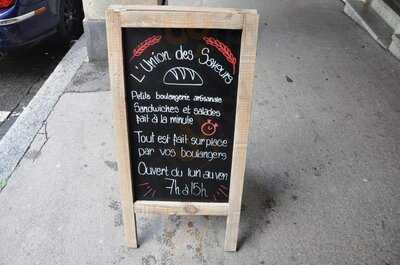 L'Union des Saveurs
Petits boulangerie artisanale
Sandwiches et salades
fait à la minute
Tout est fait sur place
par vos boulangers
Ouvert du lun au ven
7h à 15h